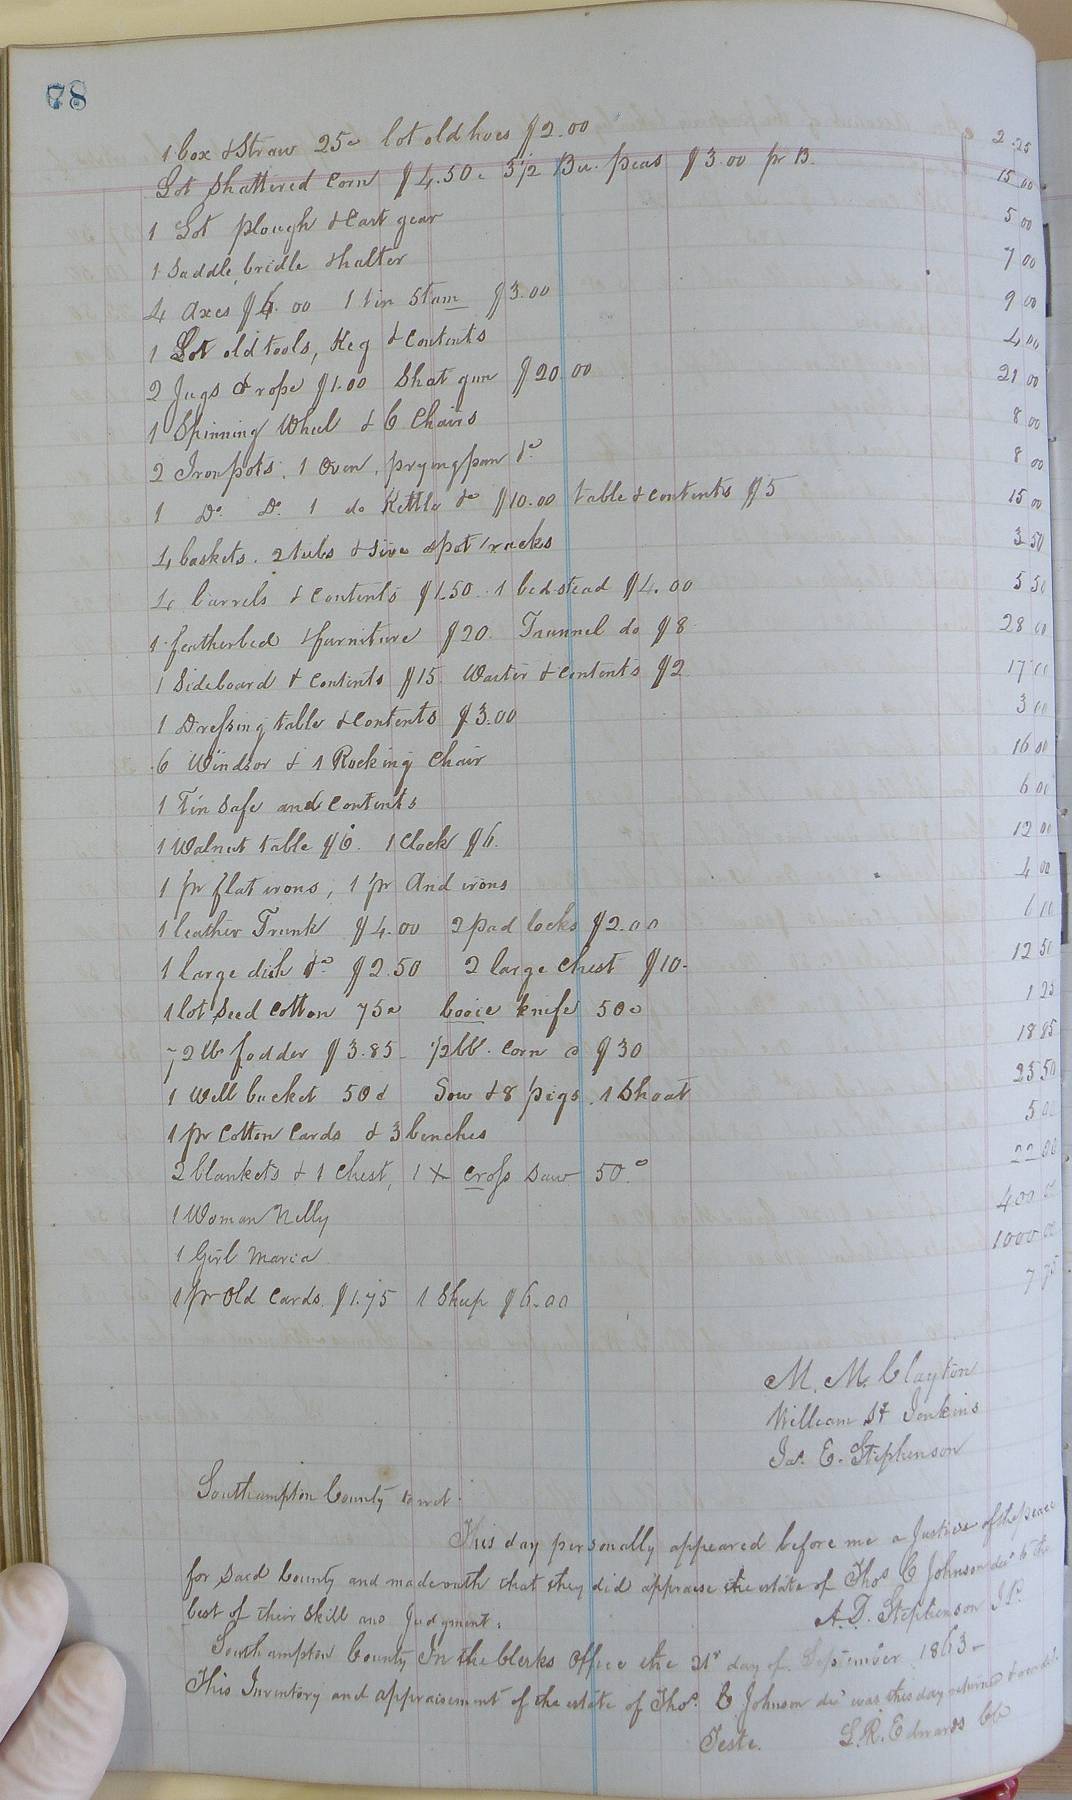 78
1 box & Straw 25c lot old hoes $2.00 2.25
Lot Shattered corn $4.50c 3 1/2 Bu. peas $3.00 pr B. 15 00
1 Lot plough & Cart gear 5 00
1 Saddle, bridle & halter 7 00
4 axes $6.00 1 tin Stam $3.00 9 00
1 Lot old tools, Keg & Contents 4 00
2 Jugs & rope $1.00 Shot gun $20.00 21 00
1 Spinning Wheel & 6 Chairs 8 00
2 Iron pots, 1 Oven, pryingpan &c 8 00
1 Do. Do. 1 do Kettle &c $10.00 table & contents $5 15 00
4 baskets. 2 tubs & Sive & pot racks 3 50
4 barrels & Contents $1.50. 1 bedstead $4.00 5 50
1 featherbed & furniture $20 Trunnel do $8 28 00
1 Sideboard & Contents $15. Waiter & contents $2 17 00
1 Dressing table & Contents $3.00 3 00
6 Windsor & 1 Rocking Chair 16 00
1 Tin Safe and Contents 6 00
1 Walnut table $6. 1 Clock $6. 12 00
1 pr flat irons, 1 pr And irons 4 00
1 leather Trunk $4.00 2 pad locks $2.00 6 00
1 large dish &c $2.50 2 large Chest $10- 12 50
1 lot Seed Cotton 75c booie knife 50c 1 25
72 lb fodder $3.85- 1/2 bbl. Corn @ $30 18 85
1 Well bucket 50c Sow & 8 pigs. 1 Shoat 25 50
1 pr Cotton Cards & 3 benches 5 00
2 blankets & 1 Chest, 1 X Cross Saw 50c 22 00
1 Woman Nelly 400 00
1 Girl Maria 1000 00
1 pr Old Cards. $1.75 1 Sheep $6.00 7 75
M. M. Clayton
William H Jenkins
Jas. E. Stephenson
Southampton County to wit.
This day personally appeared before me a Justice of the peace
for said County and made oath that they did appraise the estate of Thos C Johnson decd to the
best of their Skill and Judgment.
A. D. Stephenson J.P.
Southampton County In the Clerks Office the 21st day of September 1863-
This Inventory and appraisement of the estate of Thos. C Johnson decd was this day returned & recorded.
Teste. L. R. Edwards CC